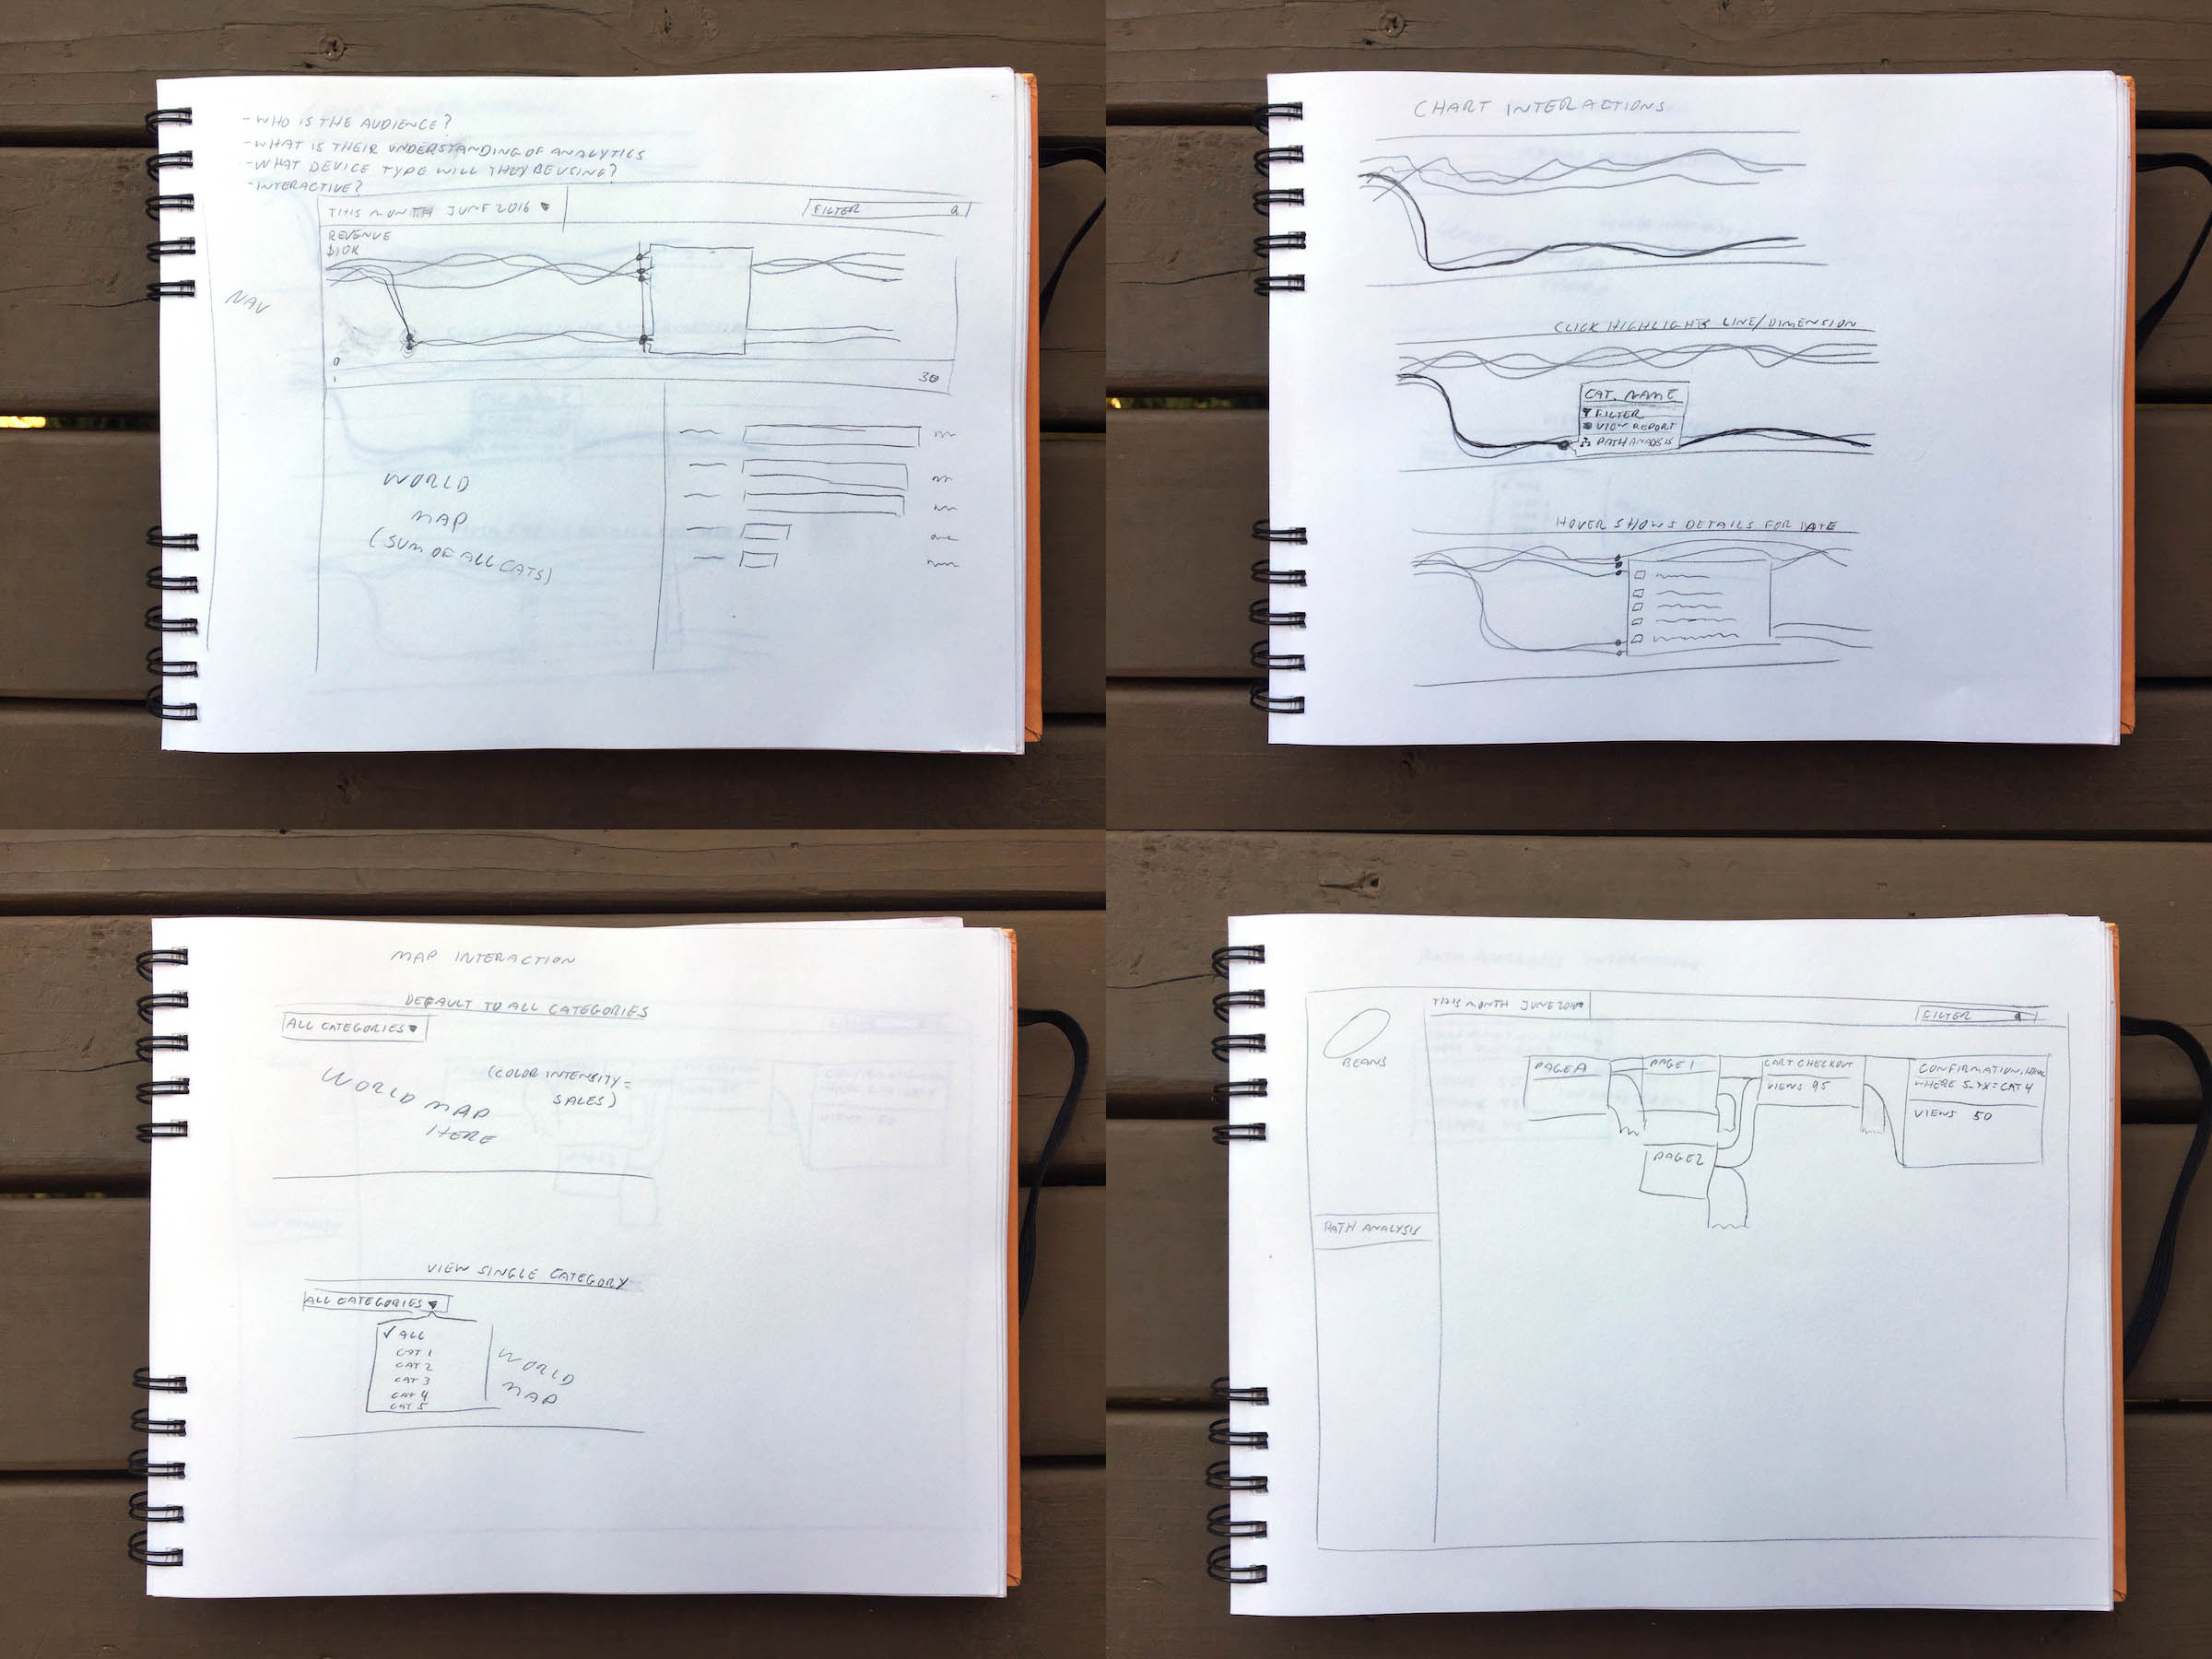 - WHO IS THE AUDIENCE?
- WHAT IS THEIR UNDERSTANDING OF ANALYTICS
- WHAT DEVICE TYPE WILL THEY BE USING?
- INTERACTIVE?
THIS MONTH JUNE 2016
FILTER
REVENUE
$10K
NAV
0
1
30
WORLD
MAP
(SUM OF ALL CATS)
CHART INTERACTIONS
CLICK HIGHLIGHTS LINE/DIMENSION
CAT. NAME
FILTER
VIEW REPORT
PATH ANALYSIS
HOVER SHOWS DETAILS FOR DATE
MAP INTERACTION
DEFAULT TO ALL CATEGORIES
ALL CATEGORIES
(COLOR INTENSITY =
SALES)
WORLD MAP
HERE
VIEW SINGLE CATEGORY
ALL CATEGORIES
✓ ALL
CAT 1
CAT 2
CAT 3
CAT 4
CAT 5
WORLD
MAP
THIS MONTH JUNE 2016
FILTER
BEANS
PAGE A
PAGE 1
CART CHECKOUT
VIEWS 95
CONFIRMATION.
WHERE = CAT 4
VIEWS 50
PAGE 2
PATH ANALYSIS